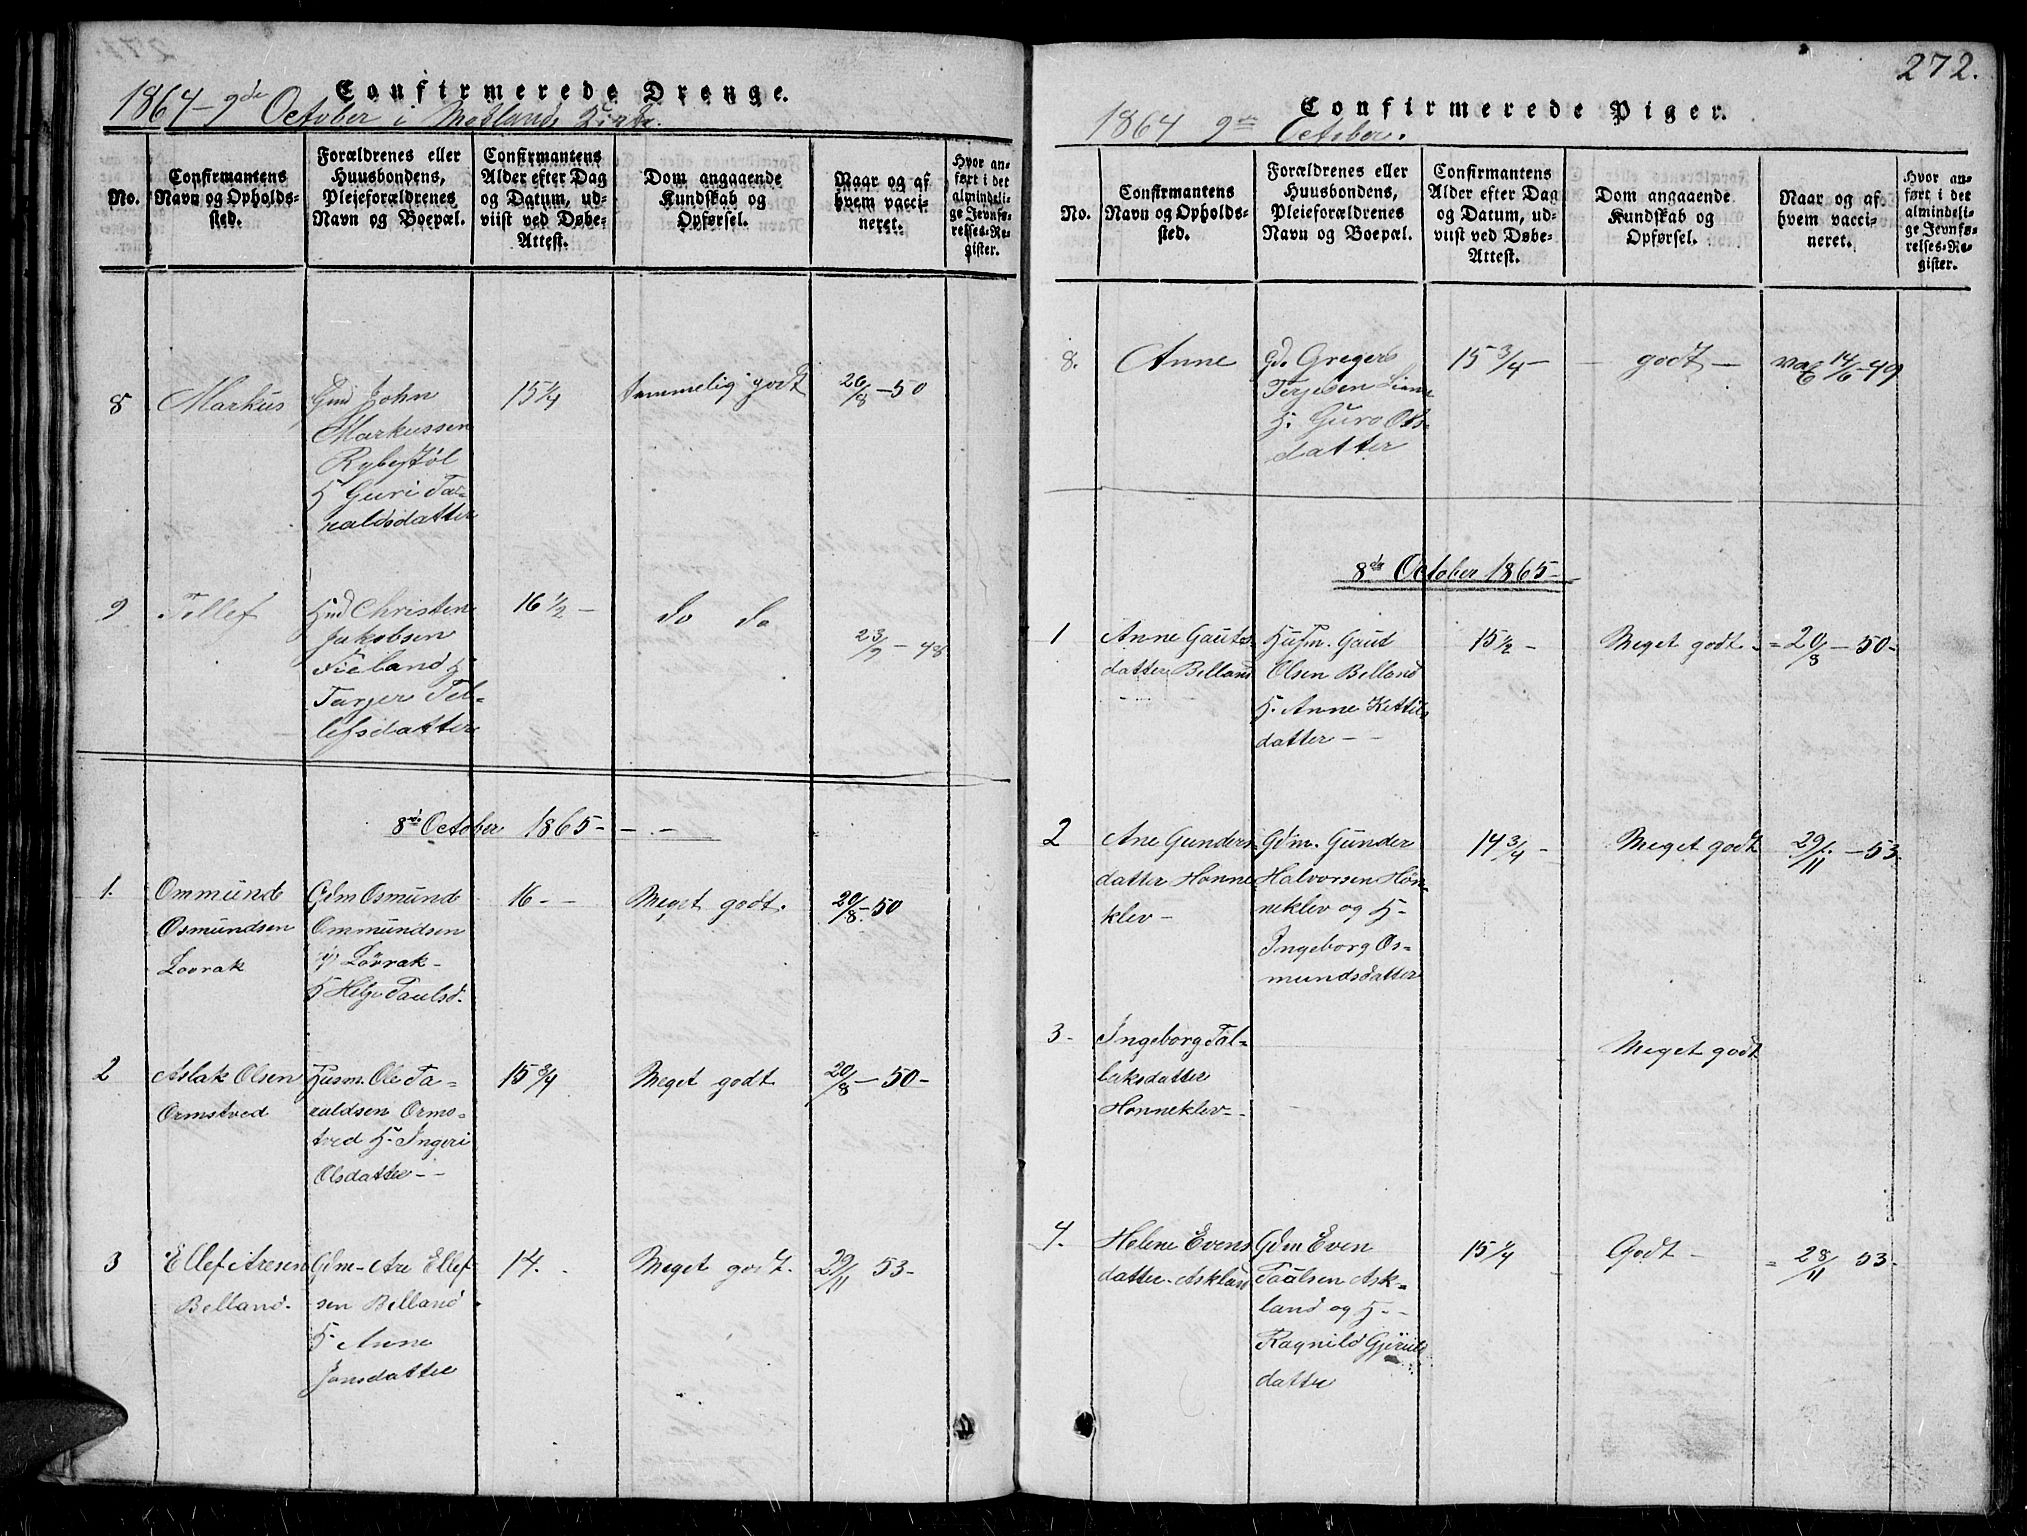 Confirmerede Drenge.
1864 - 9de October i
No.
Confirmantens
Navn og Opholds-
sted.
Forældrenes eller
Huusbondens,
Plejeforældrenes
Navn og Boepæl.
Confirmantens
Alder efter Dag
og Datum, ud-
viist ved Døbe-
Attest.
Dom angaaende
Kundskab og
Opførsel.
Naar og af
hvem vacci-
neret.
Hvor an-
ført i det
almindeli-
ge Jevnfø-
relses-Re-
gister.
8 Markus
Gmd John
Markussen
Rybestøl
H Guri Ta-
raldsdatter
15 1/4
temmelig godt
26/8 - 50
9 Tellef
Hmd Christen
Jakobsen
Fieland H
Tarjer Tel-
lefsdatter
16 1/2 -
do do
23/9 - 48
8de October 1865 - - -
1. Ommund
Osmundsen
Lovrak
Gdm Osmund
Ommundsen
Lovrak -
H Helge Paulsd.
16 - -
Meget godt.
20/8 - 50
2 Aslak Olsen
Ormstved
Husm. Ole Ta-
raldsen Orms-
tved H. Ingeri
Olsdatter - -
15 3/4
Meget godt
20/8 - 50 -
3 Ellef Aresen
Belland.
Gdm - Are Ellef-
sen Belland
H. Anne
Jonsdatter
14. -
Meget godt.
29/11 53 -
272.
Confirmerede Piger.
1864 9de October.
No.
Confirmantens
Navn og Opholds-
sted.
Forældrenes eller
Huusbondens,
Plejeforældrenes
Navn og Boepæl.
Confirmantens
Alder efter Dag
og Datum, ud-
viist ved Døbe-
Attest.
Dom angaaende
Kundskab og
Opførsel.
Naar og af
hvem vacci-
neret.
Hvor an-
ført i det
almindeli-
ge Jevnfø-
relses-Re-
gister.
8. Anne
Gd. Gregers
Terjesen Liane
H. Guro Ols-
datter
15 3/4 -
- godt -
vac 14/6 - 49
8de October 1865 -
1 Anne Gauts-
datter Belland
Husm. Gaut
Olsen Belland
H. Anne Kettils
datter - -
15 1/2 -
Meget godt -
= 20/8 - 50 -
2 Ane Gunders-
datter Honne
klev -
Gdm. Gunder
Halvorsen Hon-
neklev og H.
Ingeborg Os-
mundsdatter
14 3/4 -
Meget godt
29/11 - 53 -
3 - Ingeborg Tal-
laksdatter
Honneklev -
Meget godt
4. Helene Evens
datter - Askland
Gdm Even
Paulsen Ask-
land og H. -
Ragnild
datter
15 1/4
Godt -
= 28/11 53 -